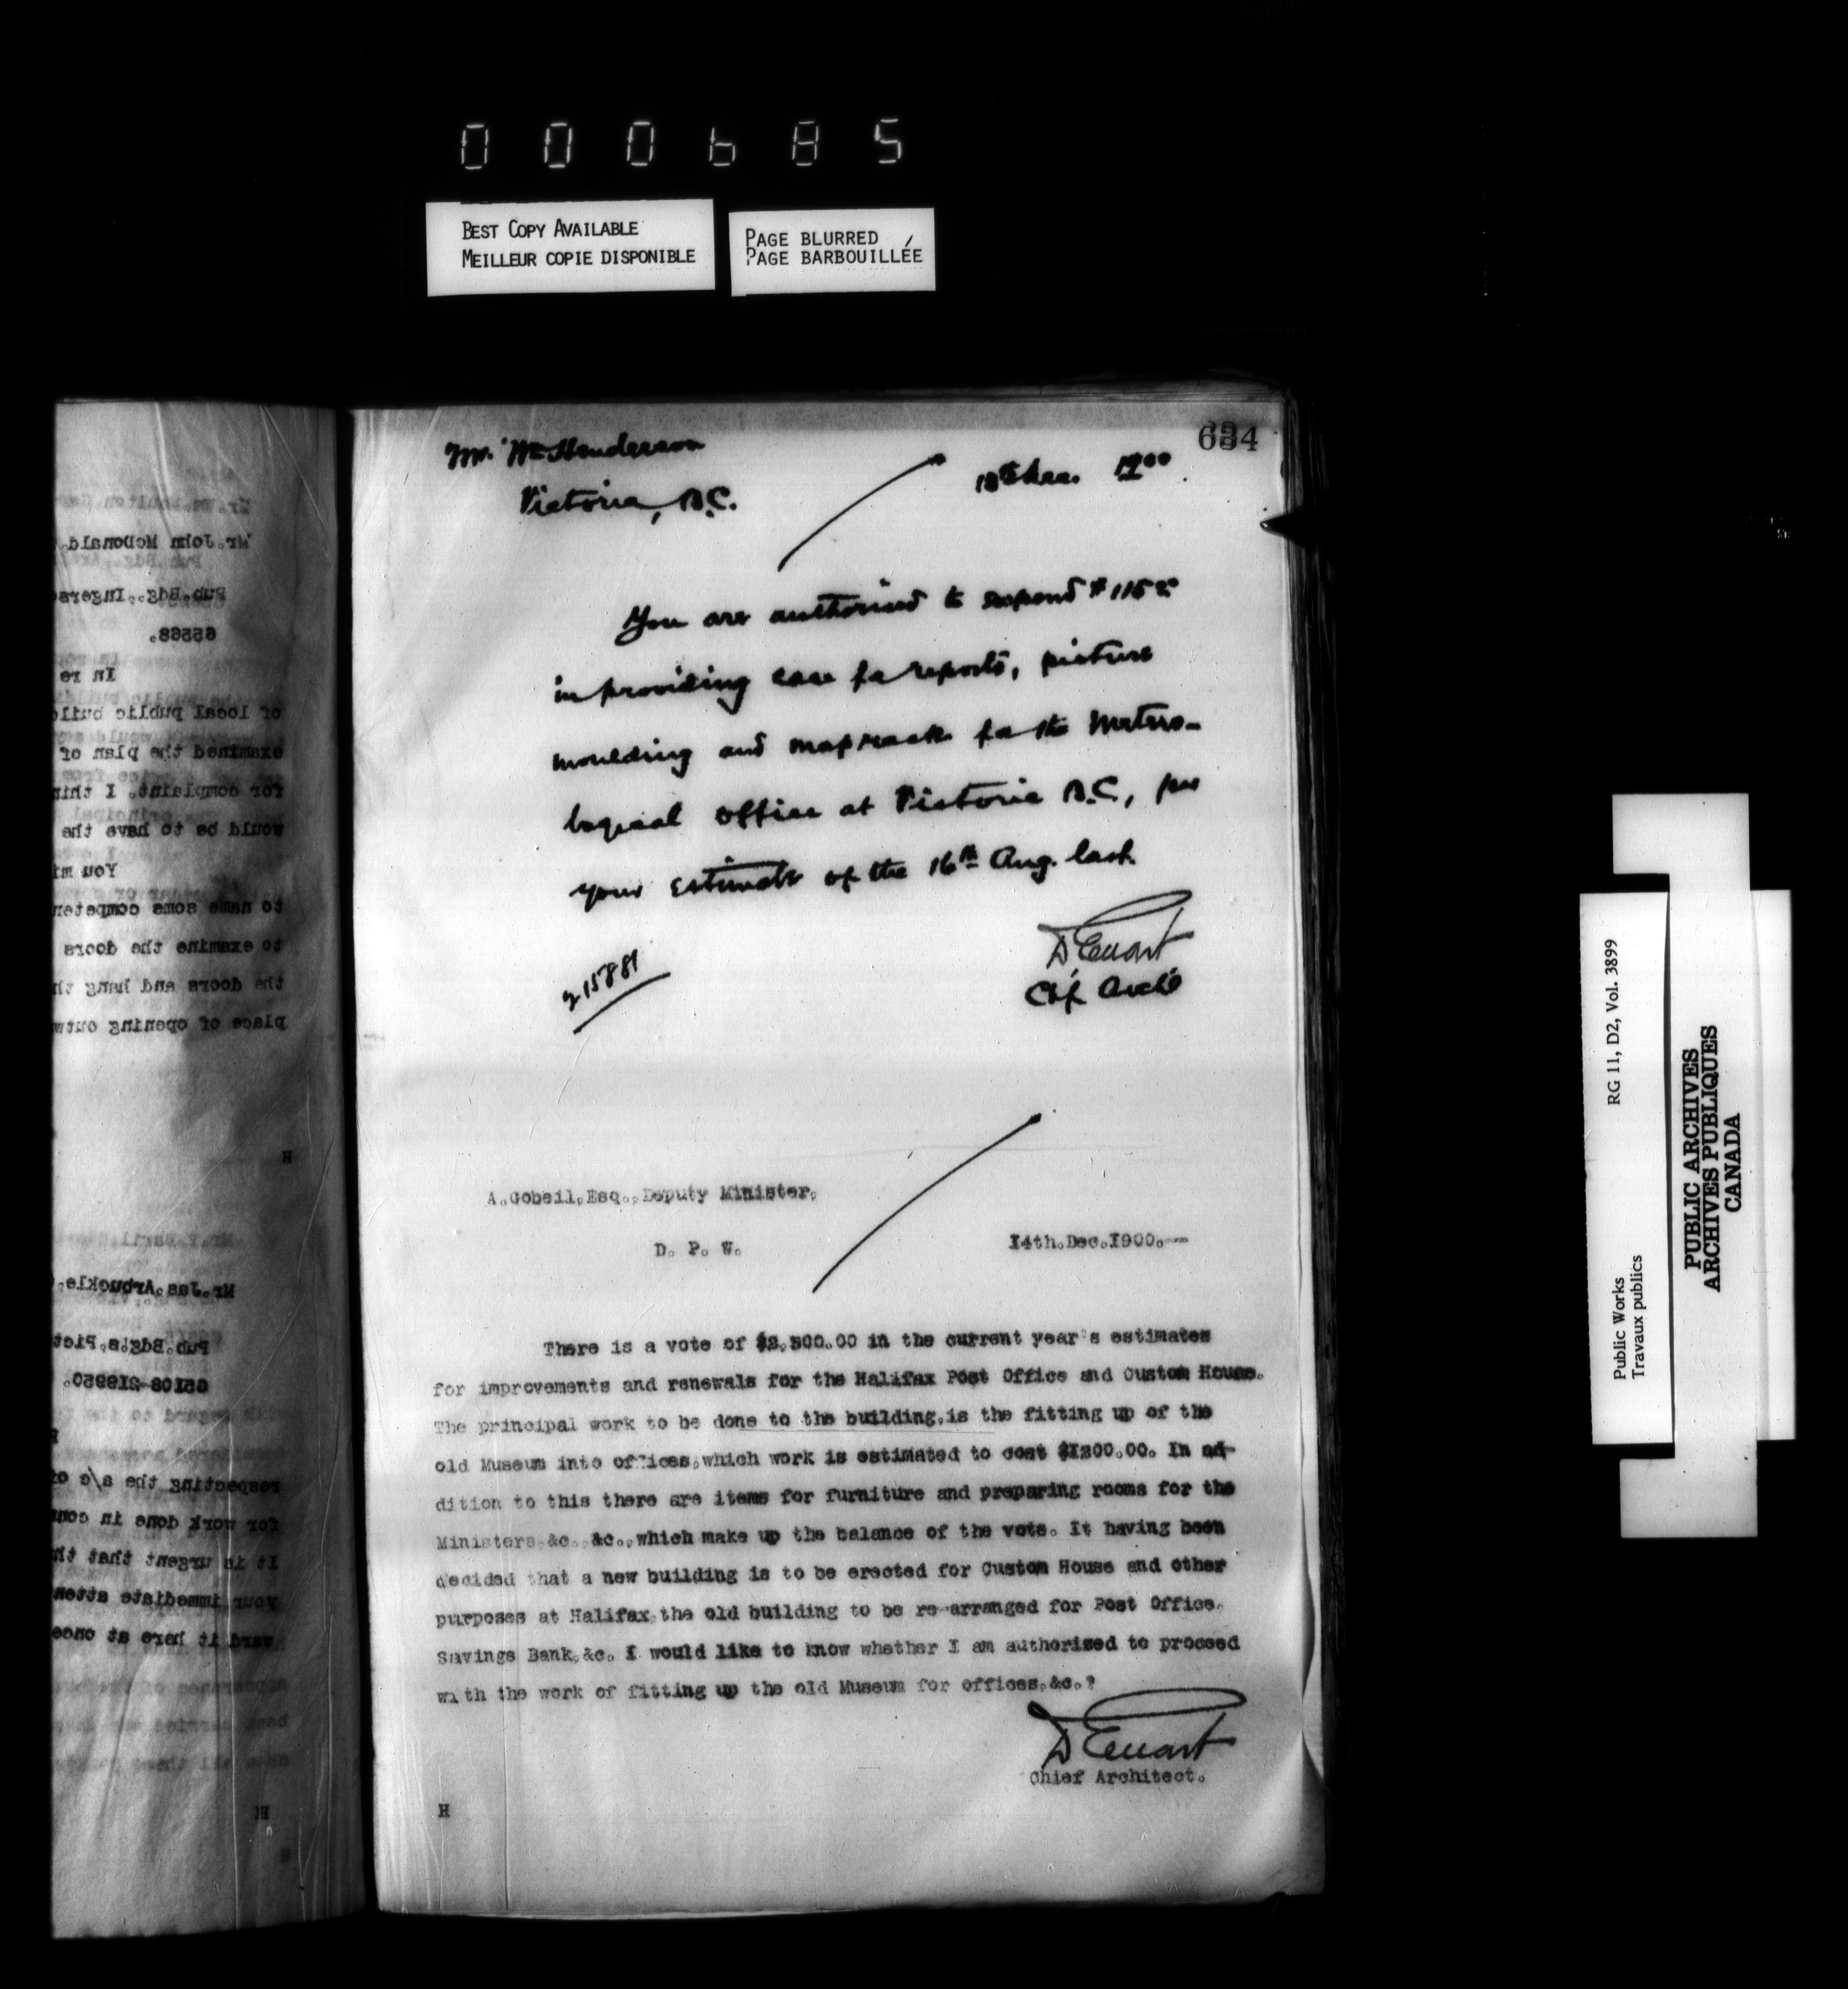 000685
BEST COPY AVAILABLE
MEILLEUR COPIE DISPONIBLE
PAGE BLURRED
PAGE BARBOUILLÉE
634
Mr. Wm Henderson
Victoria, B.C.
Dec. 1900
You are authorised to expend $115
in providing case for reports, picture
moulding and map rack for the Metero-
logical office at Victoria B.C., per
your estimate of the 16th Aug. last.
D Ewart
Chf. Archt
215881
A.Gobeil,Esq.,Deputy Minister,
D. P. W.
14th.Dec.1900.—
There is a vote of $2,500.00 in the current year's estimates
for improvements and renewals for the Halifax Post Office and Custom House.
The principal work to be done to the building,is the fitting up of the
old Museum into offices,which work is estimated to cost $1200.00. In ad-
dition to this there are items for furniture and preparing rooms for the
Ministers,&c.,&c.,which make up the balance of the vote. It having been
decided that a new building is to be erected for Custom House and other
purposes at Halifax,the old building to be re-arranged for Post Office,
Savings Bank,&c. I would like to know whether I am authorized to proceed
with the work of fitting up the old Museum for offices,&c.?
D Ewart
Chief Architect.
H
Mr.John McDonald
Pub.Bdg.,Ingers
65568.
In re
of local public buil
examined the plan of
for complaint. I thin
would be to have the
You mi
to name some competen
to examine the doors
the doors and hang th
place of opening outw
H
Mr.Jas Arbuckle,
Pub.Bdg's,Pict
respecting the a/c of
for work done in con
It is urgent that th
your immediate atten
ward it here at once
H
RG 11, D2, Vol. 3899
Public Works
Travaux publics
PUBLIC ARCHIVES
ARCHIVES PUBLIQUES
CANADA